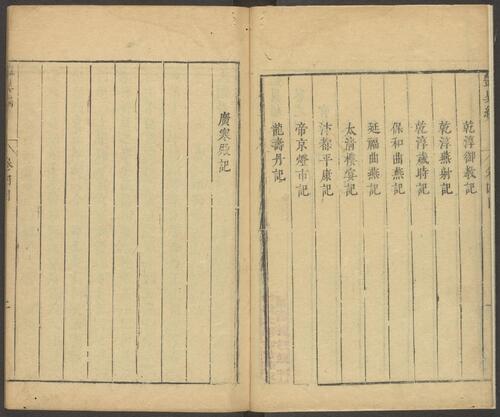 乾淳御教記
乾淳燕射記
乾淳歲時記
保和曲燕記
延福曲燕記
太清樓宴記
汴都平康記
帝京燈市記
龍壽丹記
廣寒殿記